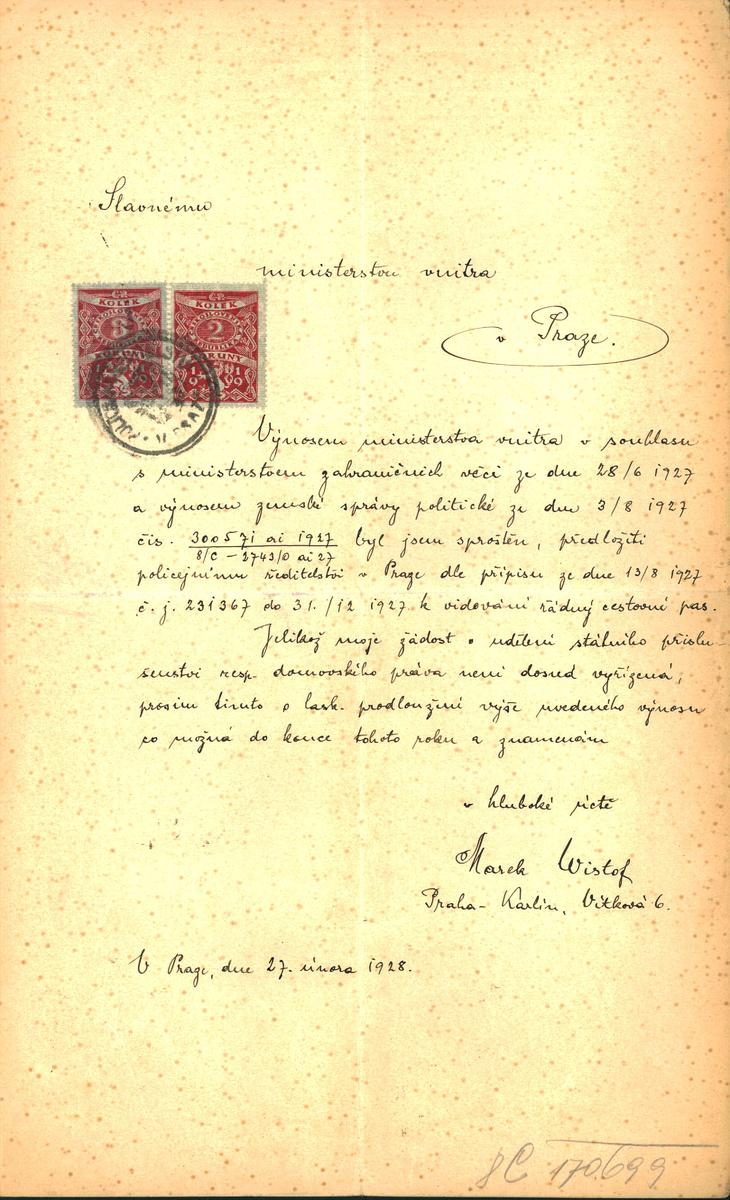 Slavnému
ministerstvu vnitra
v Praze.
KOLEK
KOLEK
2
KORUNY
1919
Výnosem ministerstva vnitra v souhlasu
s ministerstvem zahraničních věcí ze dne 28/6 1927
a výnosem zemské správy politické ze dne 3/8 1927
čís. 300571 ai 1927 byl jsem sproštěn, předložiti
8/C - 2743/0 ai 27
policejnímu ředitelství v Praze dle přípisu ze dne 13/8 1927
č. j. 231367 do 31./12 1927 k vidování řádný cestovní pas.
Jelikož moje žádost o udělení státního příslu-
šenství resp. domovského práva není dosud vyřízená,
prosím tímto o lask. prodloužení výše uvedeného výnosu
co možná do konce tohoto roku a znamenám
v hluboké úctě
Marek Wistof
Praha - Karlín, Vítková 6.
V Praze, dne 27. února 1928.
8C 170.699